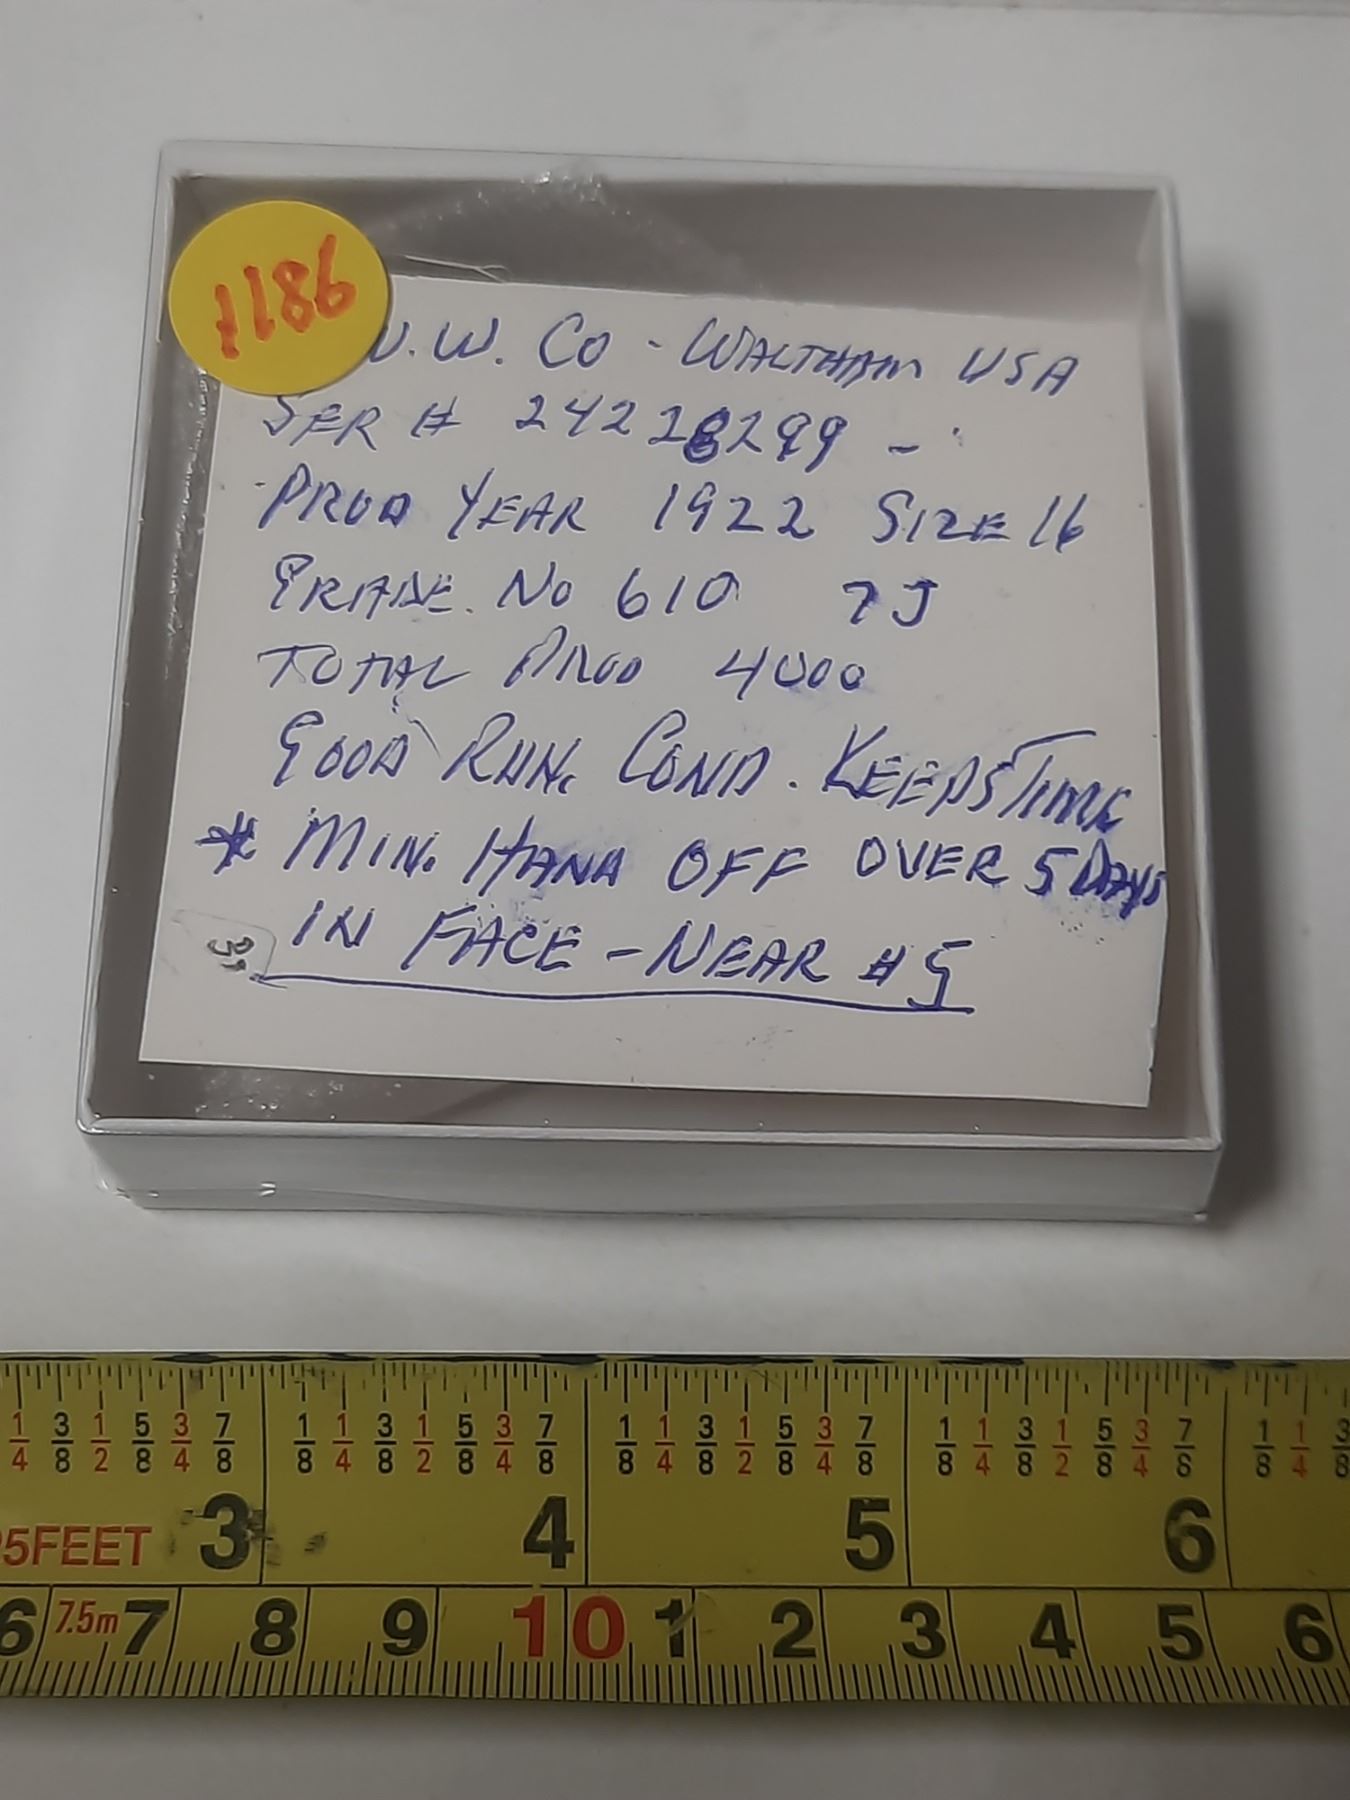 1186
.W. Co - WALTHAM USA
SER # 24228299 -
PROD YEAR 1922 SIZE 16
GRADE. No 610 7J
TOTAL PROD 4000
GOOD RUN. COND. KEEPS TIME
* MIN. HAND OFF OVER 5 DAYS
IN FACE - NEAR #5
1/4 3/8 1/2 5/8 3/4 7/8 1/8 1/4 3/8 1/2 5/8 3/4 7/8 1/8 1/4 3/8 1/2 5/8 3/4 7/8 1/8 1/4 3/8 1/2 5/8 3/4 7/8 1/8 1/4 3/8
5FEET 3 4 5 6
6 7.5m 7 8 9 10 1 2 3 4 5 6